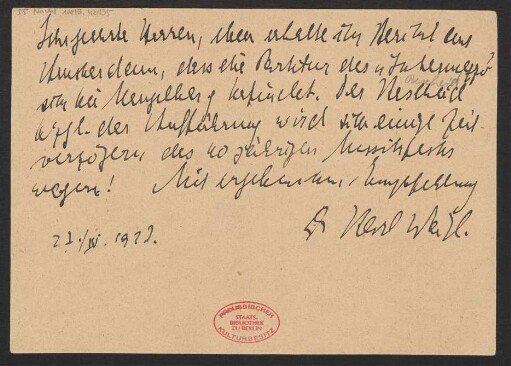 Sehr geehrte Herren, eben erhalte ich Bericht aus
Amsterdam, dass die Partitur des
sich bei Mengelberg befindet. Der Bescheid
bzgl. der Aufführung wird sich einige Zeit
verzögern des 40 jährigen Musikfests
wegen! Mit ergebenster Empfehlung
Dr Karl Weigl.
PREUSSISCHER
STAATS-
BIBLIOTHEK
ZU BERLIN
KULTURBESITZ